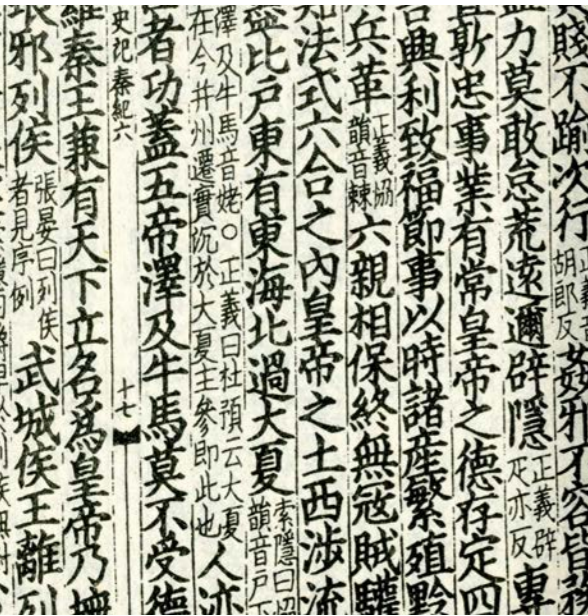 賤不踰次行胡郎反姦邪不容皆
力莫敢怠荒遠邇辟隱正義辟疋亦反專
敦忠事業有常皇帝之德存定四
害興利致福節事以時諸產繁殖黔
兵革正義協韻音棘六親相保終無寇賊驩
知法式六合之內皇帝之土西涉流
盡北戶東有東海北過大夏索隱曰協韻音戶下
澤及牛馬音姥○正義曰杜預云大夏在今并州遷實沉於大夏主參即此也人迹
者功蓋五帝澤及牛馬莫不受德
史記秦紀六 十七
維秦王兼有天下立名爲皇帝乃撫
琅邪列侯張晏曰列侯者見序例武城侯王離列